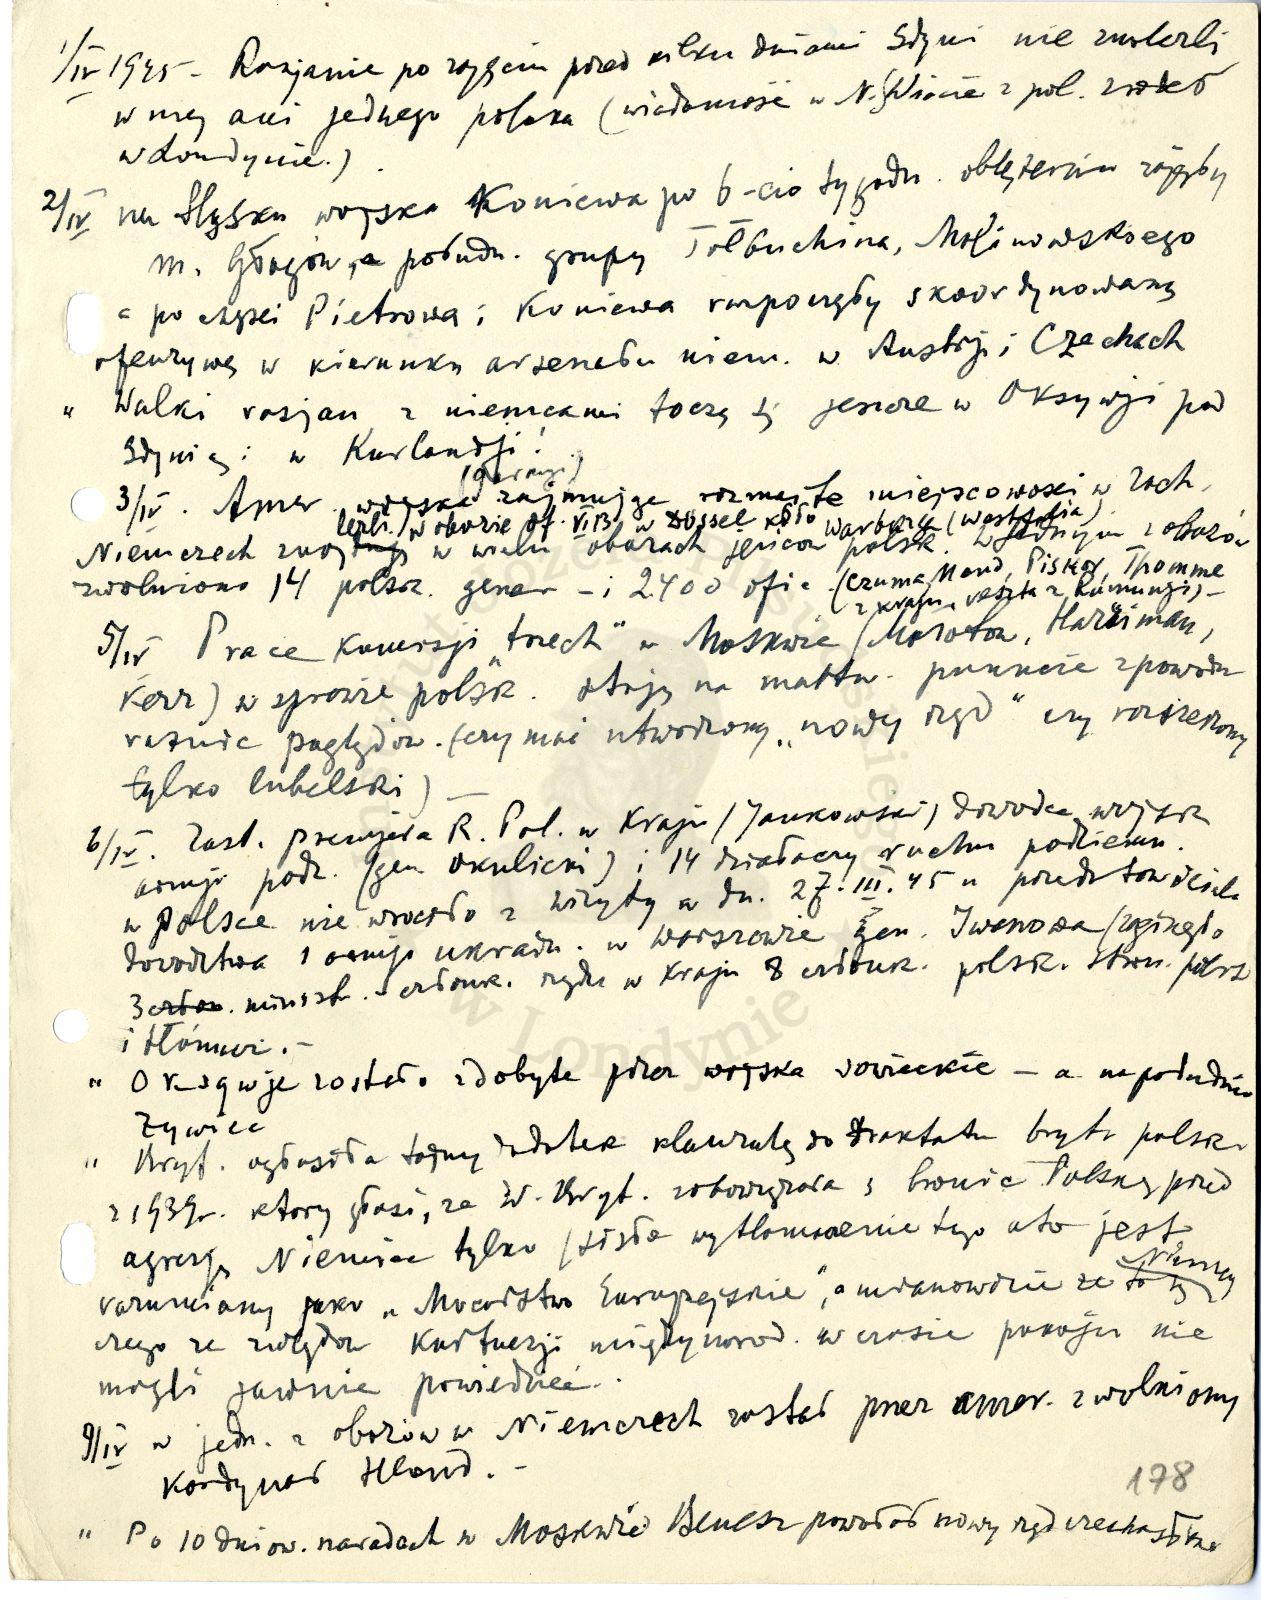 1/IV 1945 – Rosjanie po zajęciu przed kilku dniami Gdyni nie znaleźli
w niej ani jednego polaka (wiadomość w N. Świecie z pol. źródeł
w Londynie.)
2/IV na Śląsku wojska Koniewa po 6-cio tygodn. oblężeniu zajęły
m. Głogów, a połudn. grupy Tołbuchina, Malinowskiego
a po części Pietrowa i Koniewa rozpoczęły skoordynowaną
ofenzywę w kierunku arsenału niem. w Austrji i Czechach
" Walki rosjan z niemcami toczą się jeszcze w Oksywji pod
Gdynią i w Kurlandji!
3/IV. Amer. wojska zajmując rozmaite miejscowości w Zach.
(w obozie of. VI B w Dössel koło Warburg (Westfalia)
Niemczech w wielu obozach jeńców polsk. w jednym z obozów
zwolniono 14 polsk. gener – i 2400 ofic. (Czuma, Mond, Piskor, Thomme
z kraju, reszta z Rumunji) –
5/IV Prace Komisji "trzech" w Moskwie (Mołotow, Harriman,
Kerr) w sprawie polsk. stoją na martw. punkcie z powodu
różnic poglądów. (czy ma być utworzony "nowy rząd" czy rozszerzony
tylko lubelski) –
6/IV. Zast. premjera R. Pol. w Kraju (Jankowski) dowódca wojsk
armji podz. (gen Okulicki) i 14 działaczy ruchu podziemn.
w Polsce nie wróciło z wizyty w dn. 27.III.45 u przedstawiciela
dowództwa 1 armji ukraiń. w Warszawie gen. Iwanowa (zaginęło
3 ministr. – członk. rządu w Kraju 8 członk. polsk. stron. polit
i tłómacz. –
" Oksywje zostało zdobyte przez wojska sowieckie – a na południu
Żywiec
" Bryt. ogłosiła tajny dodatek klauzulę do traktatu bryt. polsk.
z 1939r. który głosi, że W. Bryt. zobowiązała się bronić Polskę przed
agresją Niemiec tylko (ścisłe wytłomaczenie tego a to jest
rozumiany jako "Mocarstwo Europejskie", a mianowicie że to są Niemcy
czego ze względów Kurtuazji międzynarod. w czasie pokoju nie
mogli jawnie powiedzieć.
9/IV w jedn. z obozów w Niemczech został przez amer. zwolniony
Kardynał Hlond. –
" Po 10 dniow. naradach w Moskwie Benesz powołał nowy rząd czechosłowac
178
w Londynie